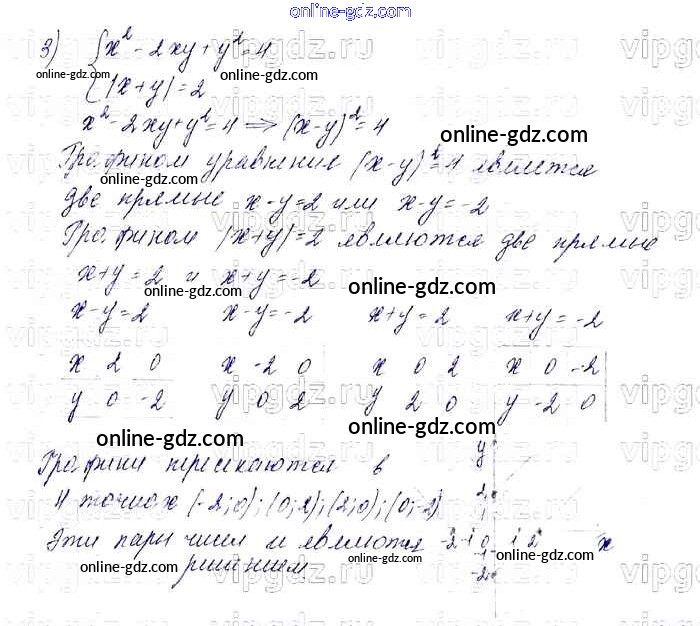 online-gdz.com
3) { x² - 2xy + y² = 4
|x+y| = 2
online-gdz.com online-gdz.com
x² - 2xy + y² = 4 ⟹ (x-y)² = 4
online-gdz.com
Графиком уравнения (x-y)² = 4 является
online-gdz.com
две прямые x-y=2 или x-y=-2
Графиком |x+y|=2 являются две прямые
x+y=2 и x+y=-2
online-gdz.com online-gdz.com
x-y=2 x-y=-2 x+y=2 x+y=-2
x 2 0 x -2 0 x 0 2 x 0 -2
y 0 -2 y 0 2 y 2 0 y -2 0
online-gdz.com online-gdz.com
Графики пересекаются в y
4 точках (-2;0); (0;2); (2;0); (0;-2) 2
Эти пары чисел и являются -2 -1 0 1 2 x
решением. -2
online-gdz.com online-gdz.com online-gdz.com
vipgdz.ru